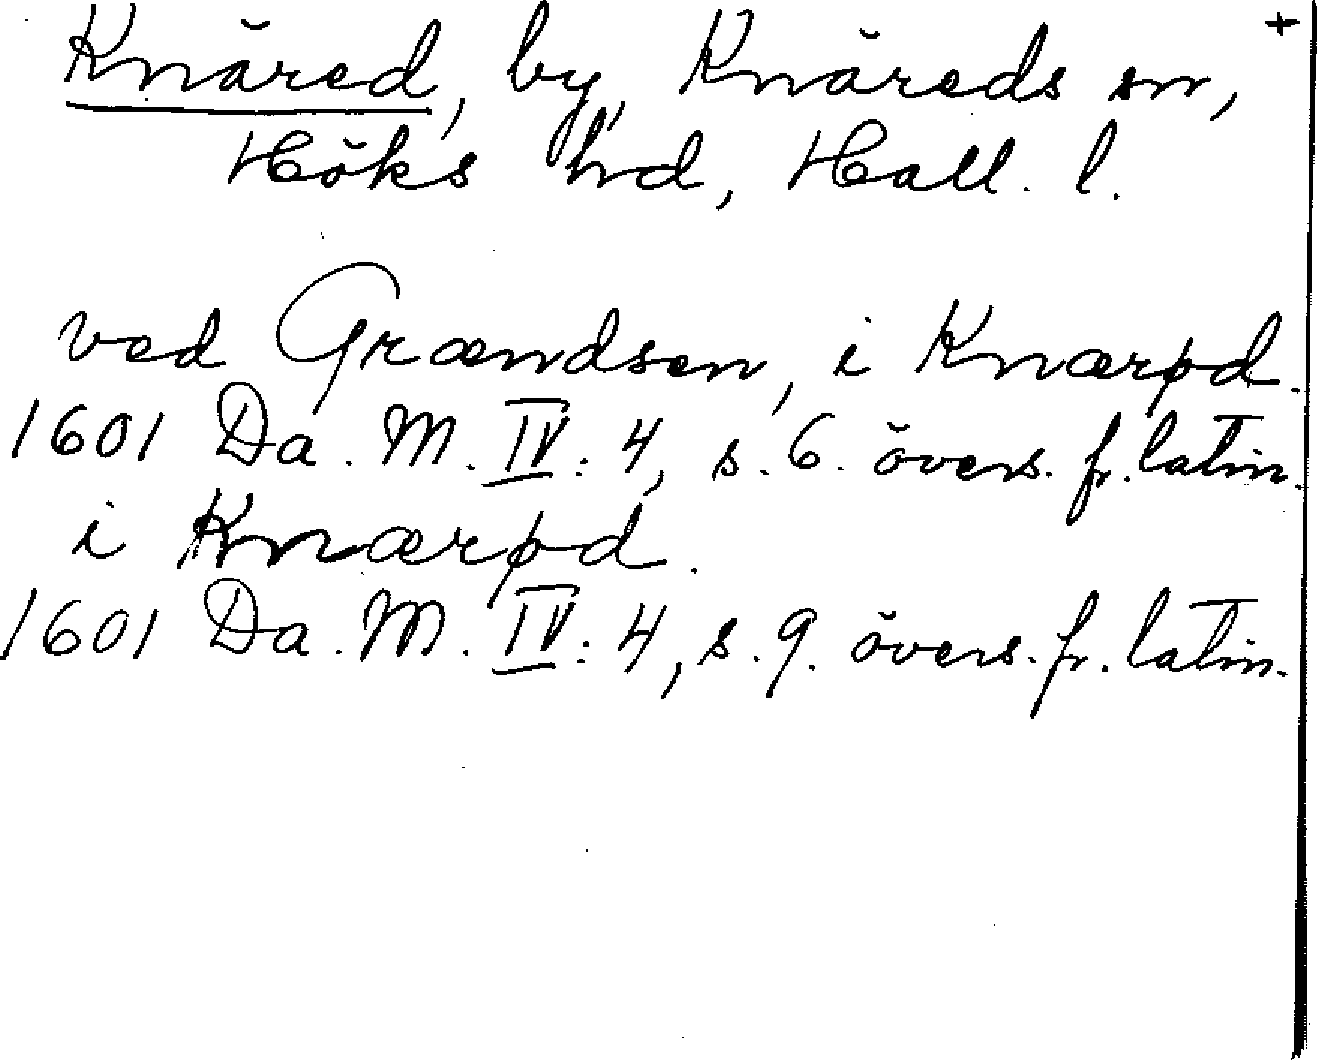 Knäred, by, Knäreds sn, +
Höks hd, Hall. l.
ved Grændsen, i Knærød.
1601 Da. M. IV: 4, s. 6. övers. fr. latin.
i Knærød.
1601 Da. M. IV: 4, s. 9. övers. fr. latin.